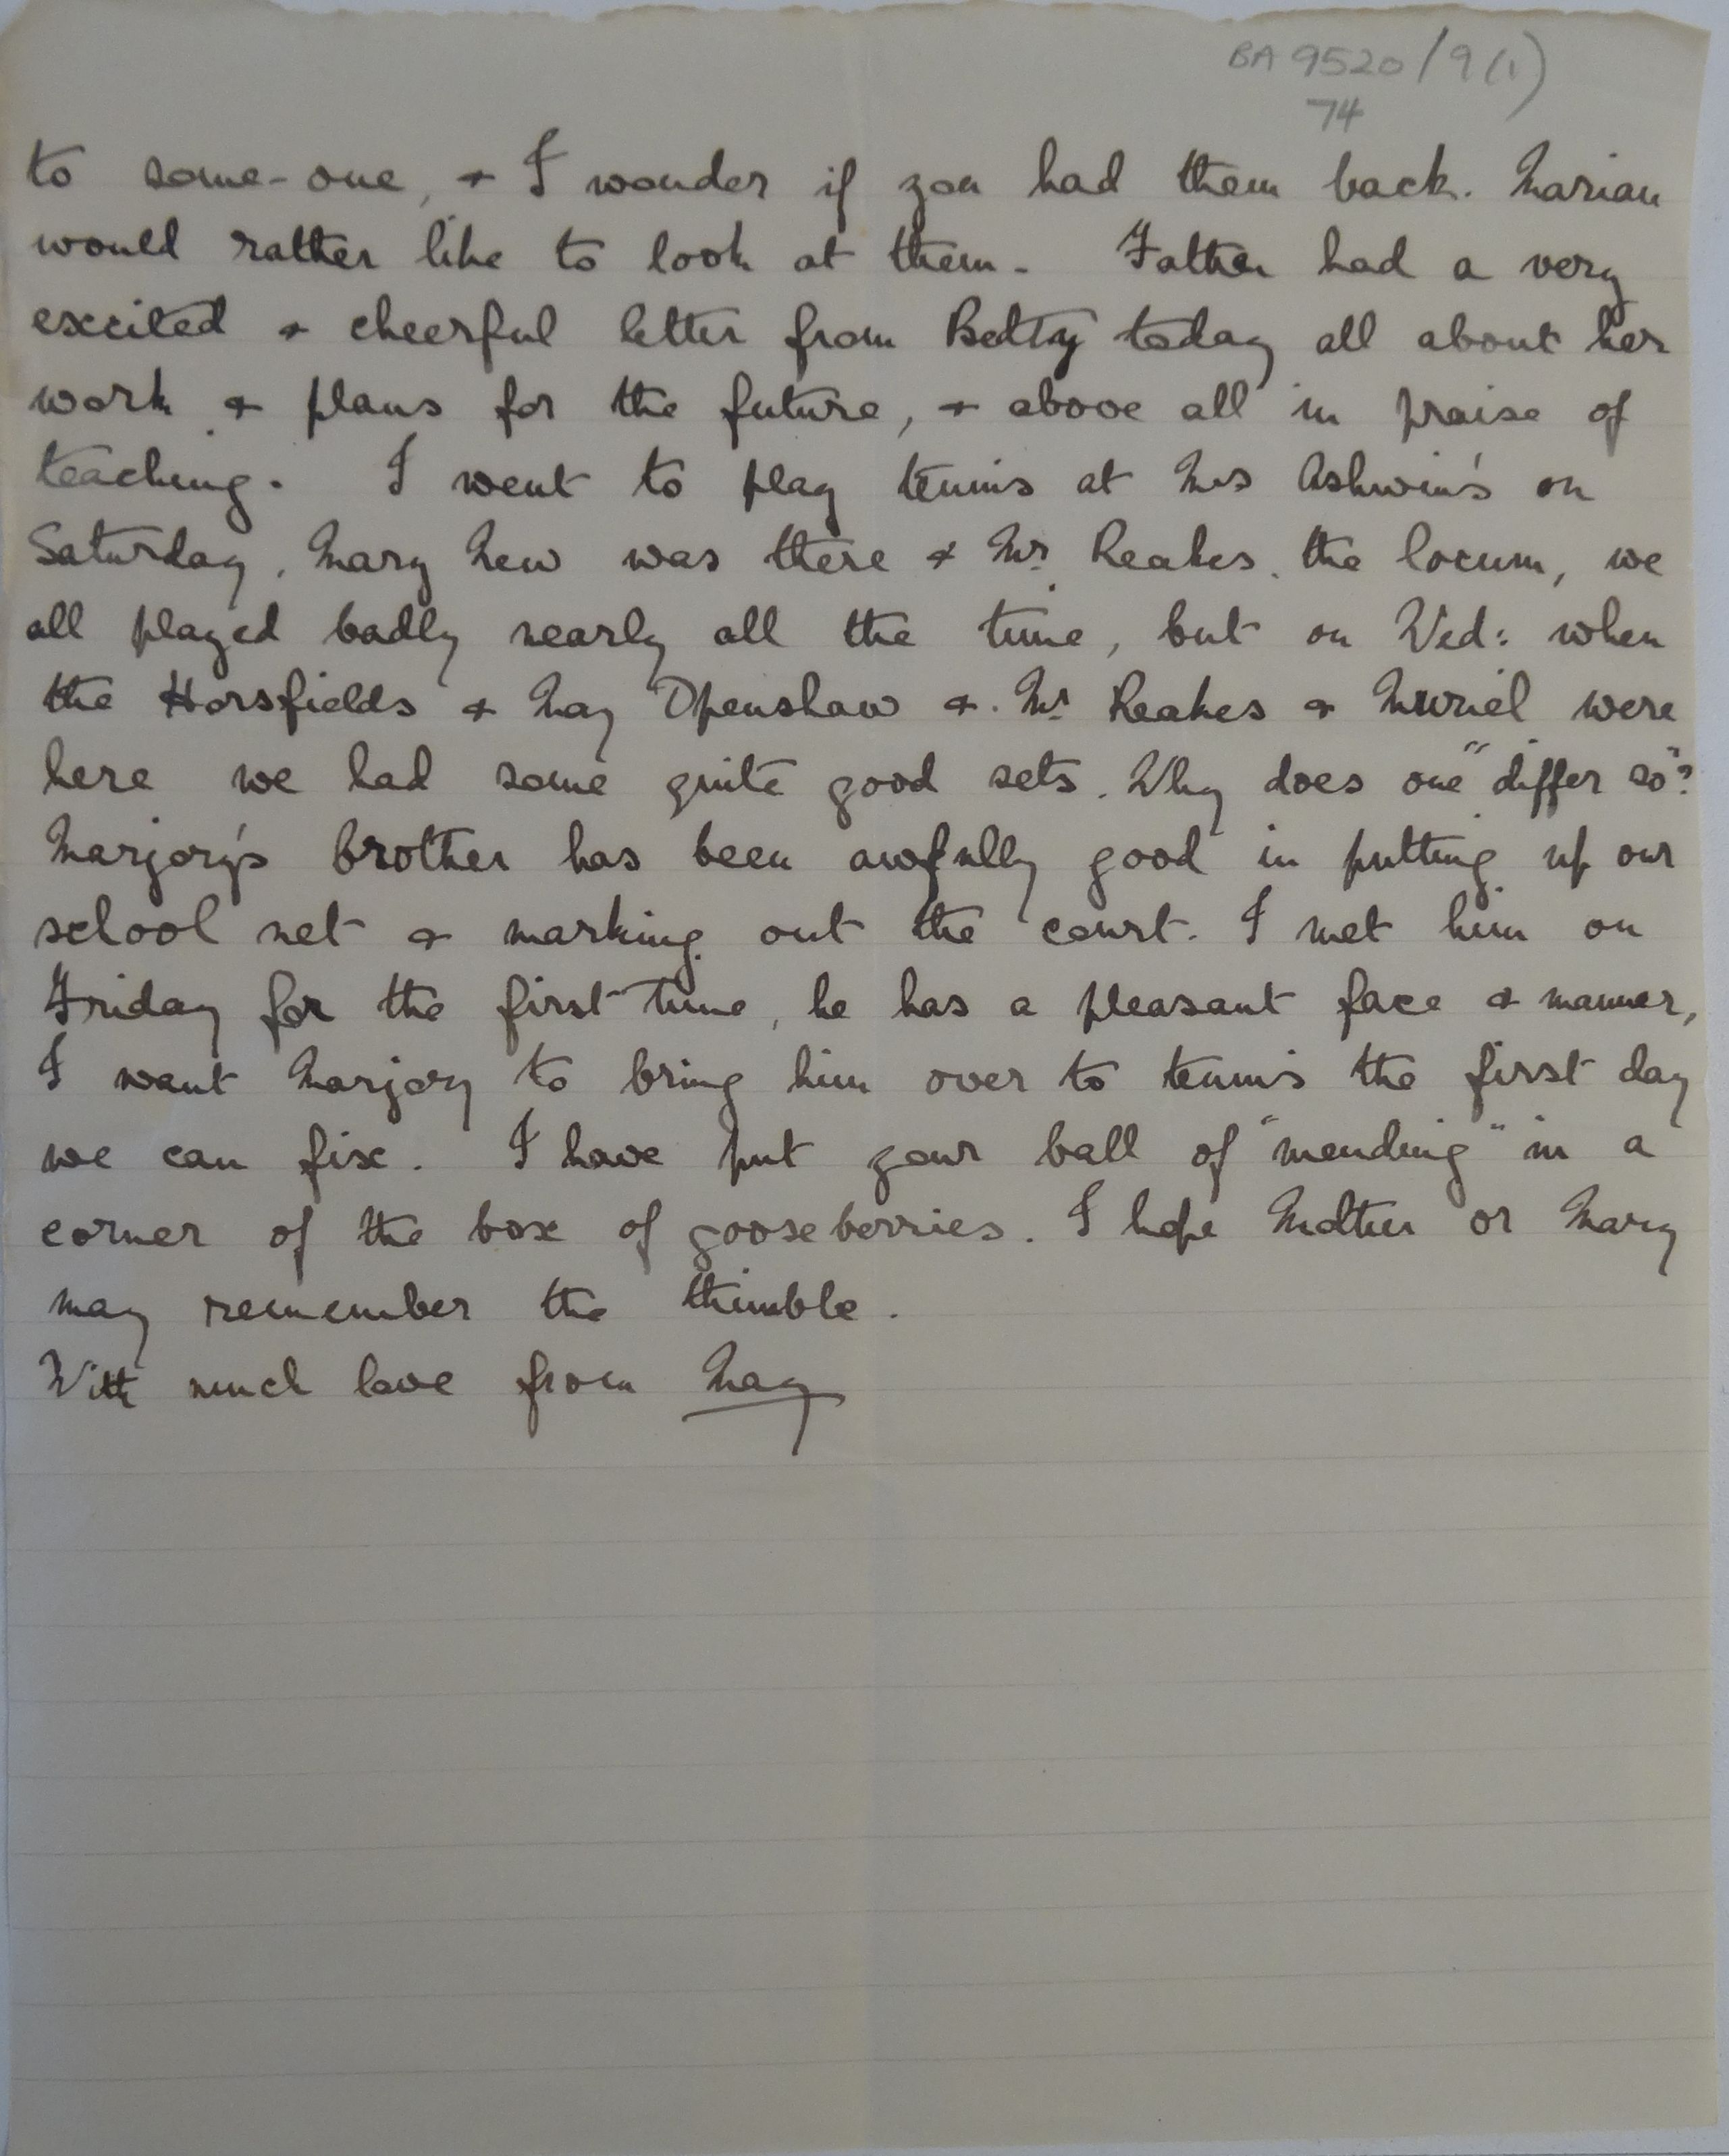 BA 9520/9(1)
74
to some-one, & I wonder if you had them back. Marian
would rather like to look at them. Father had a very
excited & cheerful letter from Betty today all about her
work & plans for the future, & above all in praise of
teaching. I went to play tennis at Mrs Ashwin's on
Saturday, Mary New was there & Mr. Reakes, the locum, we
all played badly nearly all the time, but on Wed: when
the Horsfields & May Openshaw & Mr. Reakes & Muriel were
here we had some quite good sets. Why does one "differ so"?
Marjory's brother has been awfully good in putting up our
school net & marking out the court. I met him on
Friday for the first time, he has a pleasant face & manner,
I want Marjory to bring him over to tennis the first day
we can fix. I have put your ball of "mending" in a
corner of the box of gooseberries. I hope Mother or Mary
may remember the thimble.
With much love from May